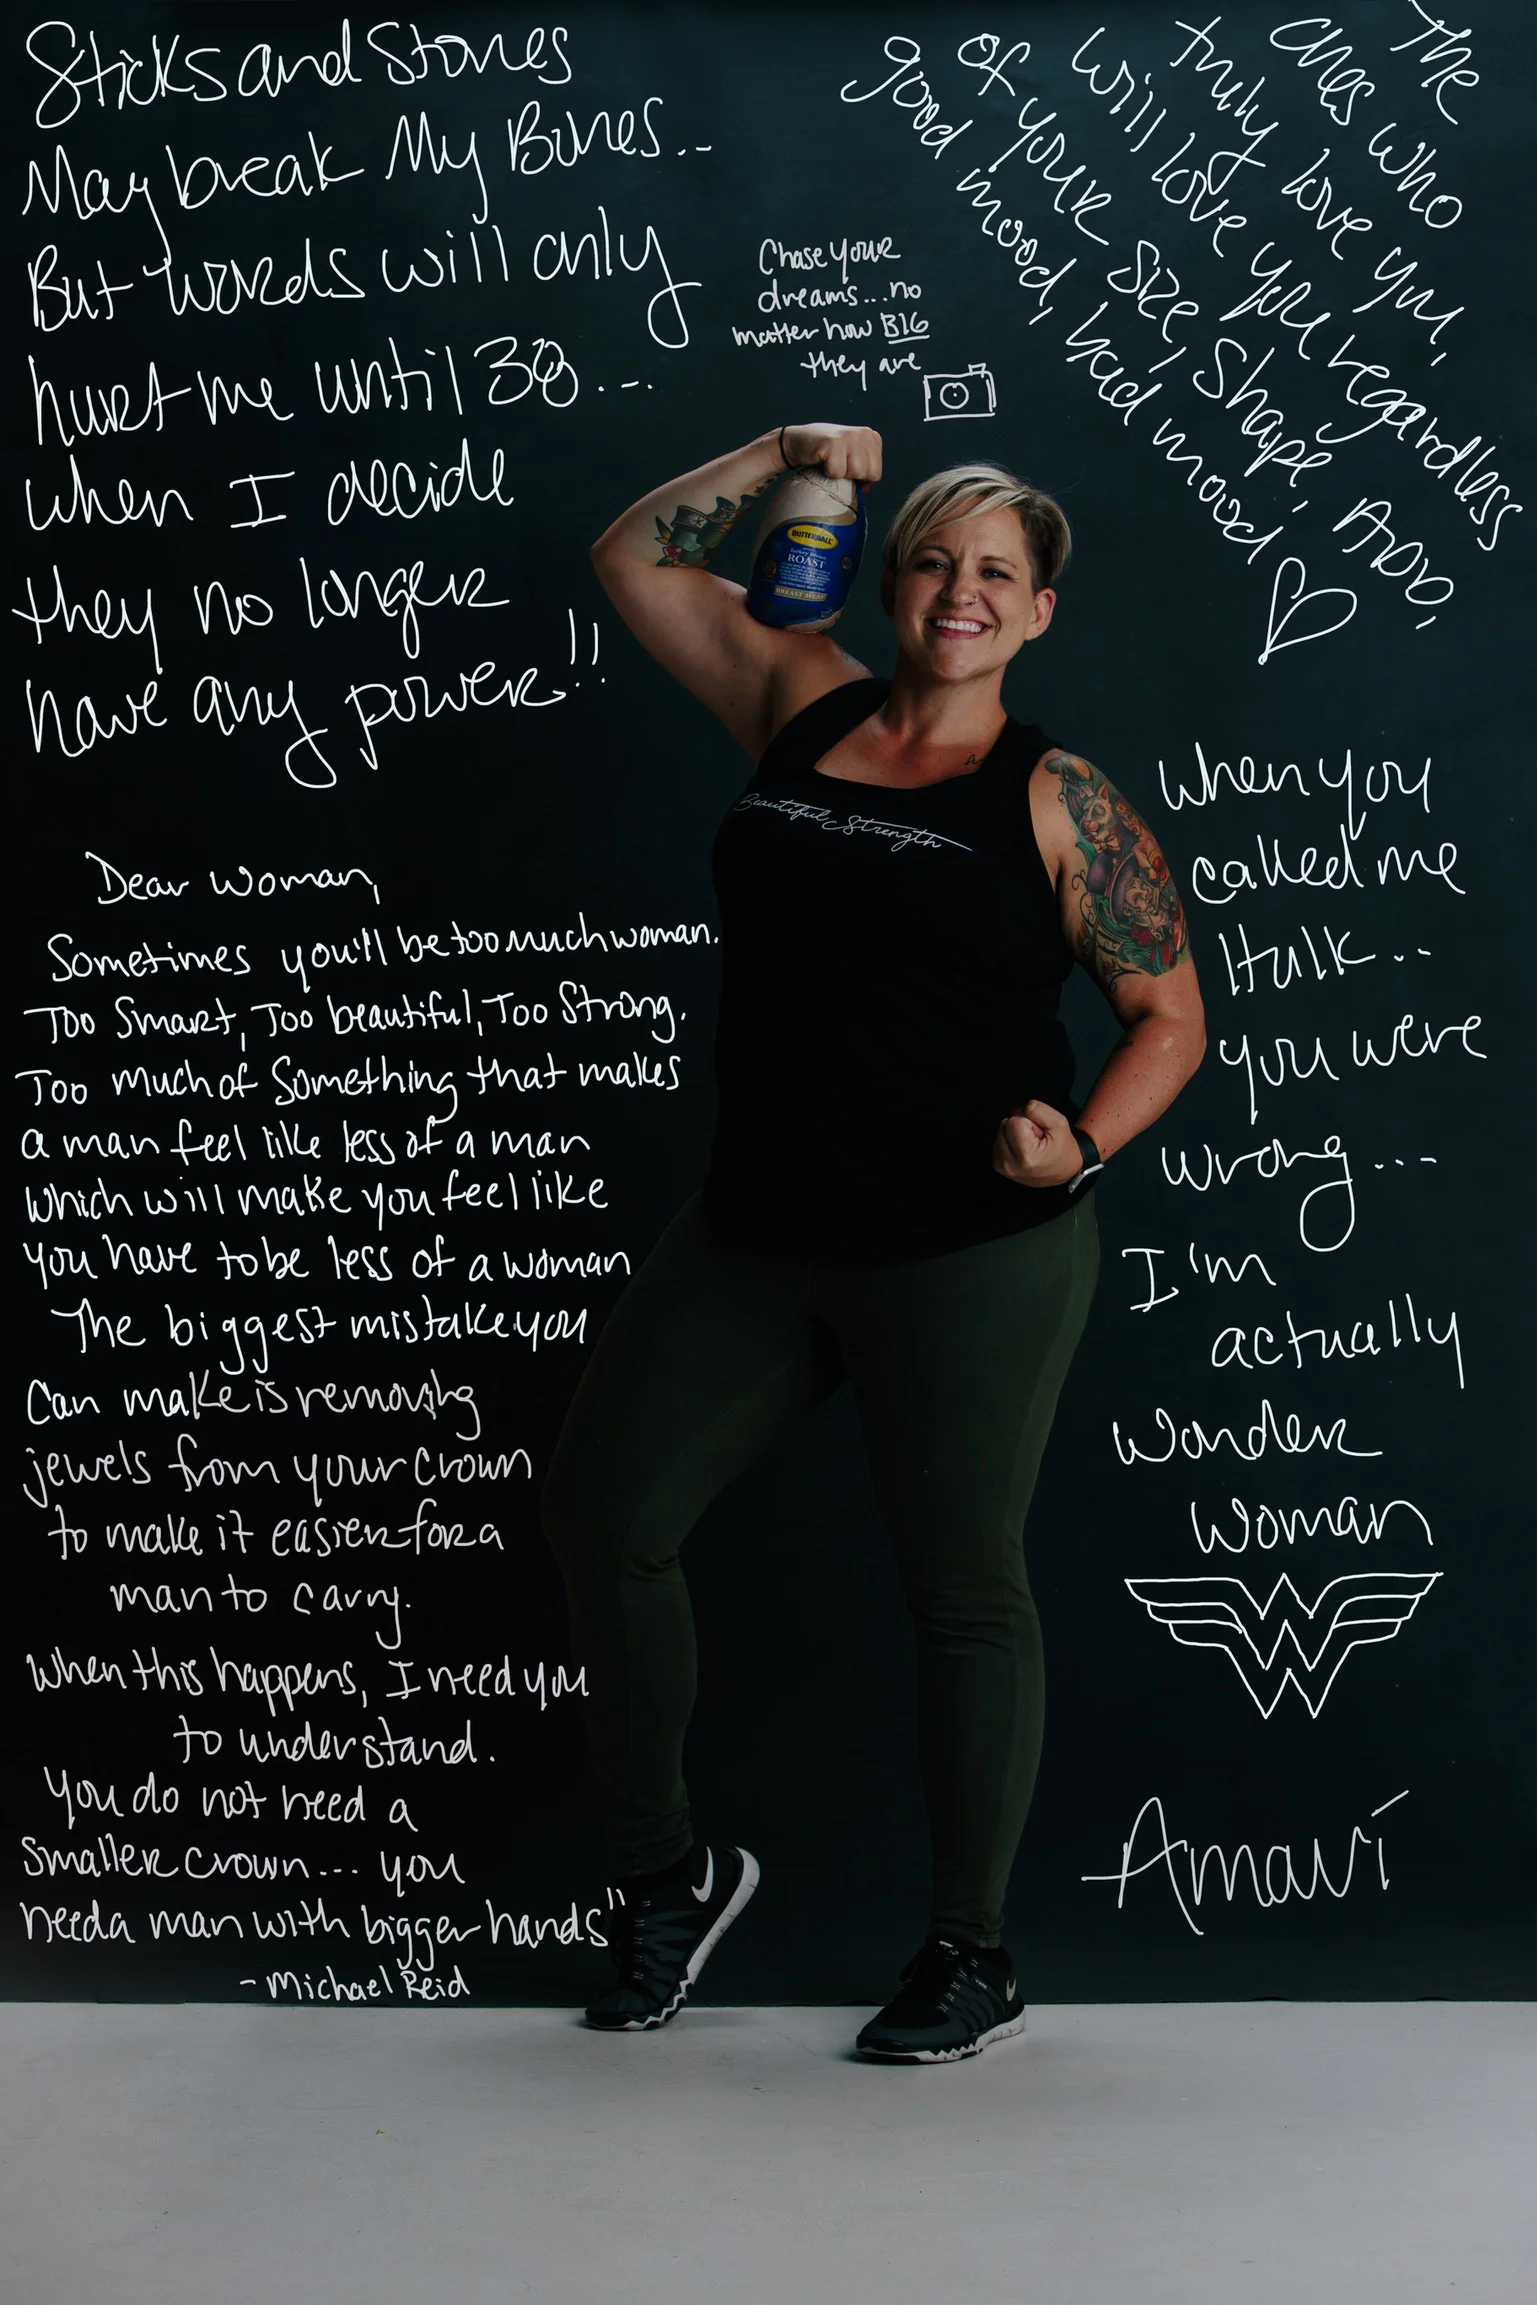 Sticks and Stones
May break My Bones...
But words will only
hurt me until 38...
when I decide
they no longer
have any power!!
The
ones who
truly love you,
will love you regardless
of your size, shape, ADD,
good mood, bad mood
Chase your
dreams...no
matter how BIG
they are
BUTTERBALL
turkey breast
ROAST
BREAST MEAT
Beautiful Strength
Dear woman,
Sometimes you'll be too much woman.
Too Smart, Too beautiful, Too Strong.
Too much of Something that makes
a man feel like less of a man
which will make you feel like
you have to be less of a woman
The biggest mistake you
Can make is removing
jewels from your crown
to make it easier for a
man to carry.
When this happens, I need you
to understand.
You do not need a
smaller crown... you
need a man with bigger hands"
- Michael Reid
when you
called me
Hulk...
you were
wrong...
I'm
actually
Wonder
Woman
Amaví